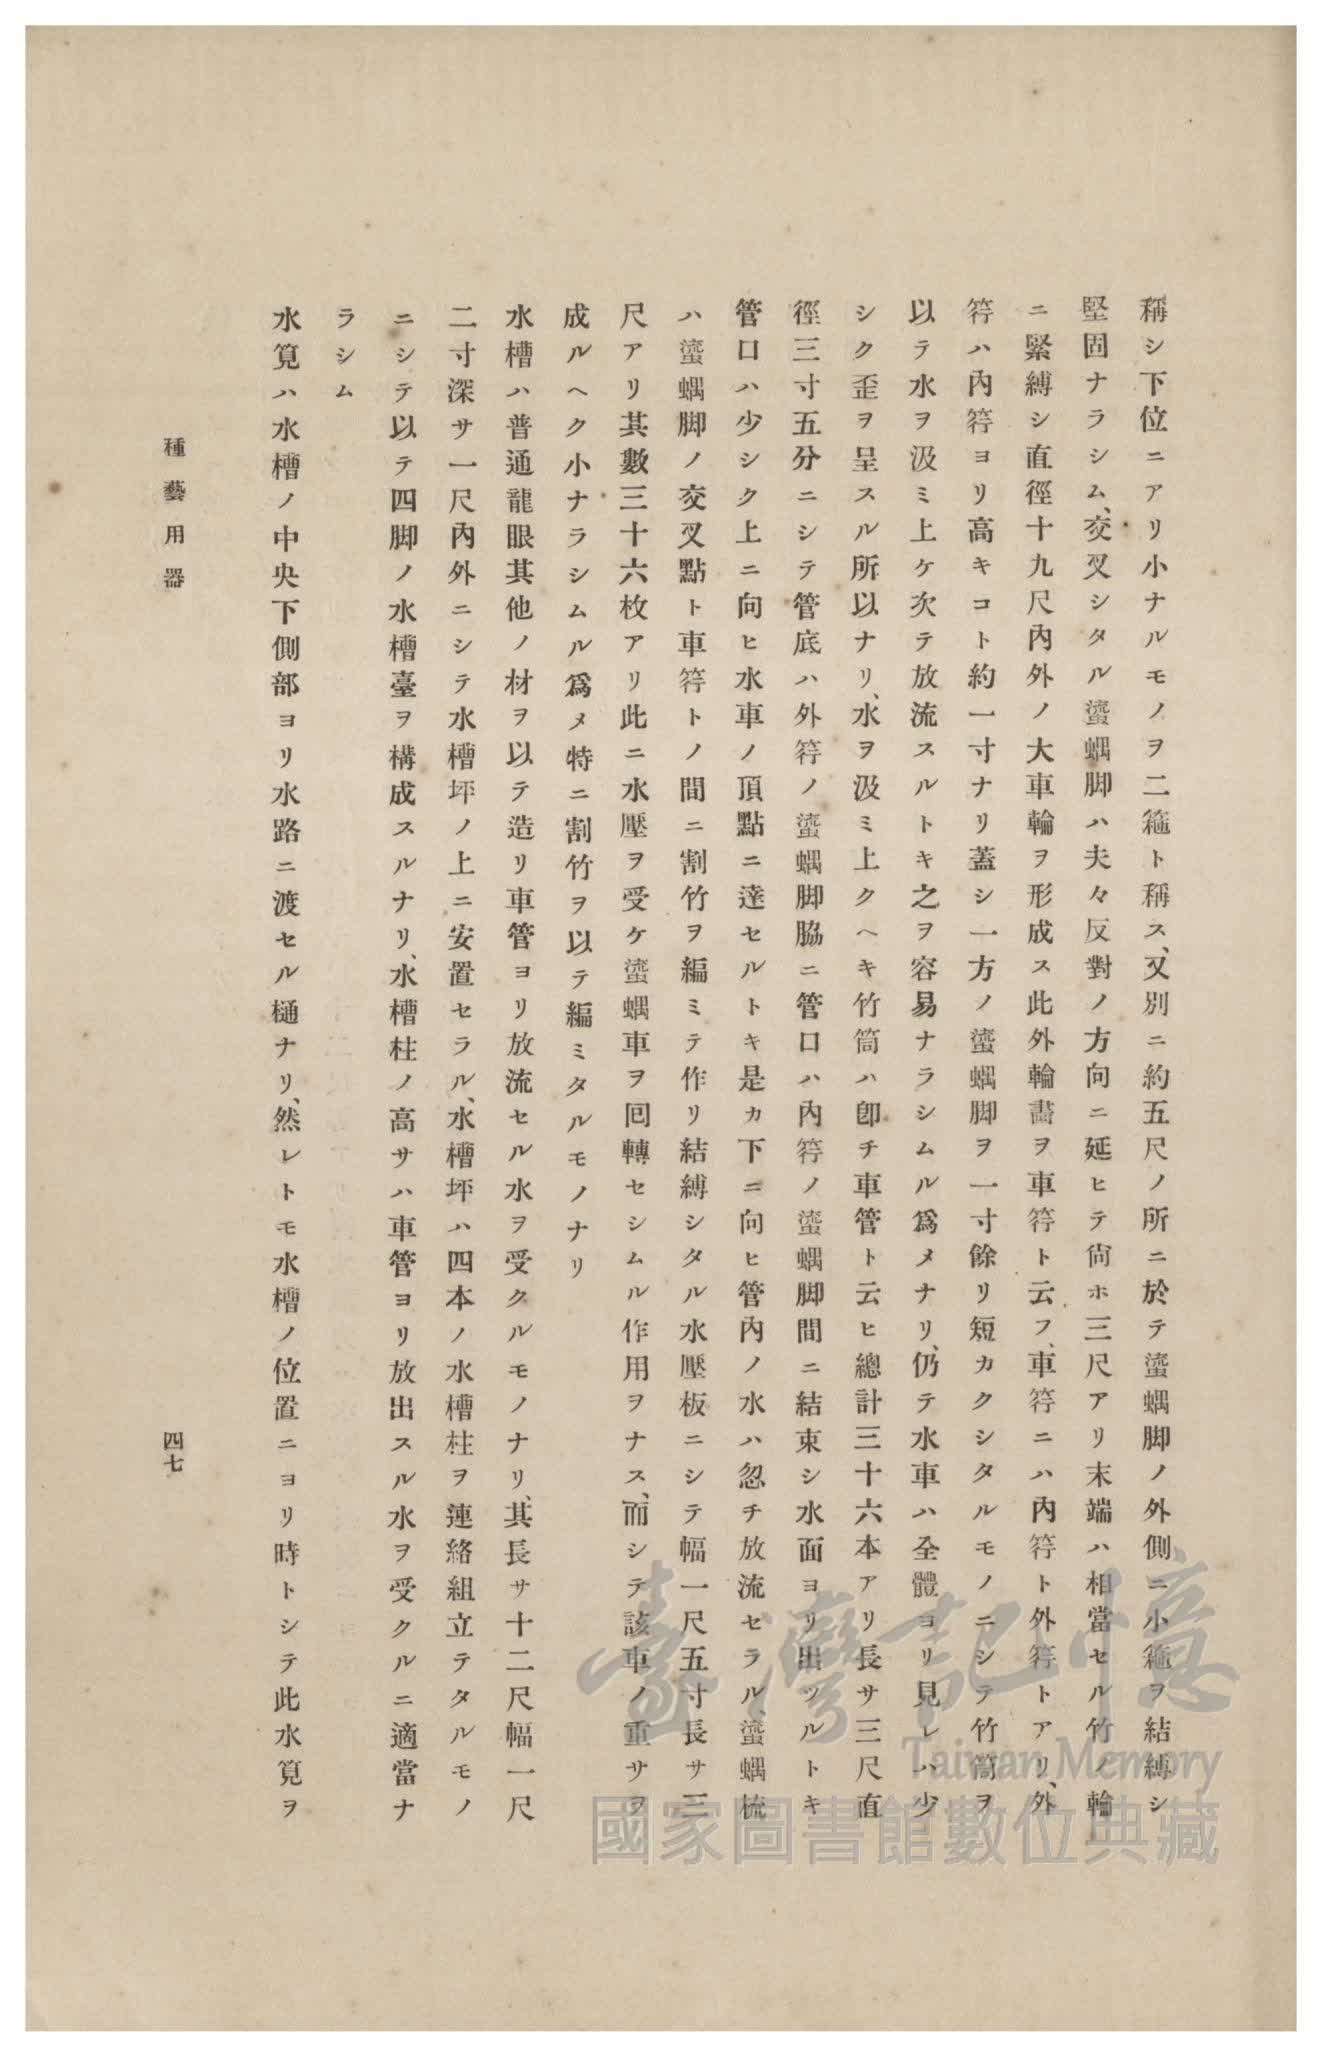 稱シ下位ニアリ小ナルモノヲ二箍ト稱ス、又別ニ約五尺ノ所ニ於テ蠻蜴脚ノ外側ニ小箍ヲ結縛シ
堅固ナラシム、交叉シタル蠻蜴脚ハ夫々反對ノ方向ニ延ヒテ尙ホ三尺アリ末端ハ相當セル竹ノ輪
ニ緊縛シ直徑十九尺內外ノ大車輪ヲ形成ス此外輪畵ヲ車箬ト云フ、車箬ニハ內箬ト外箬トアリ、外
箬ハ內箬ヨリ高キコト約一寸ナリ蓋シ一方ノ蠻蜴脚ヲ一寸餘リ短カクシタルモノニシテ竹筒ヲ
以テ水ヲ汲ミ上ケ次テ放流スルトキ之ヲ容易ナラシムル爲メナリ、仍テ水車ハ全體ヨリ見レハ少
シク歪ヲ呈スル所以ナリ、水ヲ汲ミ上クヘキ竹筒ハ卽チ車管ト云ヒ總計三十六本アリ長サ三尺直
徑三寸五分ニシテ管底ハ外箬ノ蠻蜴脚脇ニ管口ハ內箬ノ蠻蜴脚間ニ結束シ水面ヨリ出ツルトキ
管口ハ少シク上ニ向ヒ水車ノ頂點ニ達セルトキ是カ下ニ向ヒ管內ノ水ハ忽チ放流セラル、蠻蜴梳
ハ蠻蜴脚ノ交叉點ト車箬トノ間ニ割竹ヲ編ミテ作リ結縛シタル水壓板ニシテ幅一尺五寸長サ三
尺アリ其數三十六枚アリ此ニ水壓ヲ受ケ蠻蜴車ヲ囘轉セシムル作用ヲナス、而シテ該車ノ重サヲ
成ルヘク小ナラシムル爲メ特ニ割竹ヲ以テ編ミタルモノナリ
水槽ハ普通龍眼其他ノ材ヲ以テ造リ車管ヨリ放流セル水ヲ受クルモノナリ、其長サ十二尺幅一尺
二寸深サ一尺內外ニシテ水槽坪ノ上ニ安置セラル、水槽坪ハ四本ノ水槽柱ヲ連絡組立テタルモノ
ニシテ以テ四脚ノ水槽臺ヲ構成スルナリ、水槽柱ノ高サハ車管ヨリ放出スル水ヲ受クルニ適當ナ
ラシム
水筧ハ水槽ノ中央下側部ヨリ水路ニ渡セル樋ナリ、然レトモ水槽ノ位置ニヨリ時トシテ此水筧ヲ
種藝用器
四七
臺灣記憶
Taiwan Memory
國家圖書館數位典藏